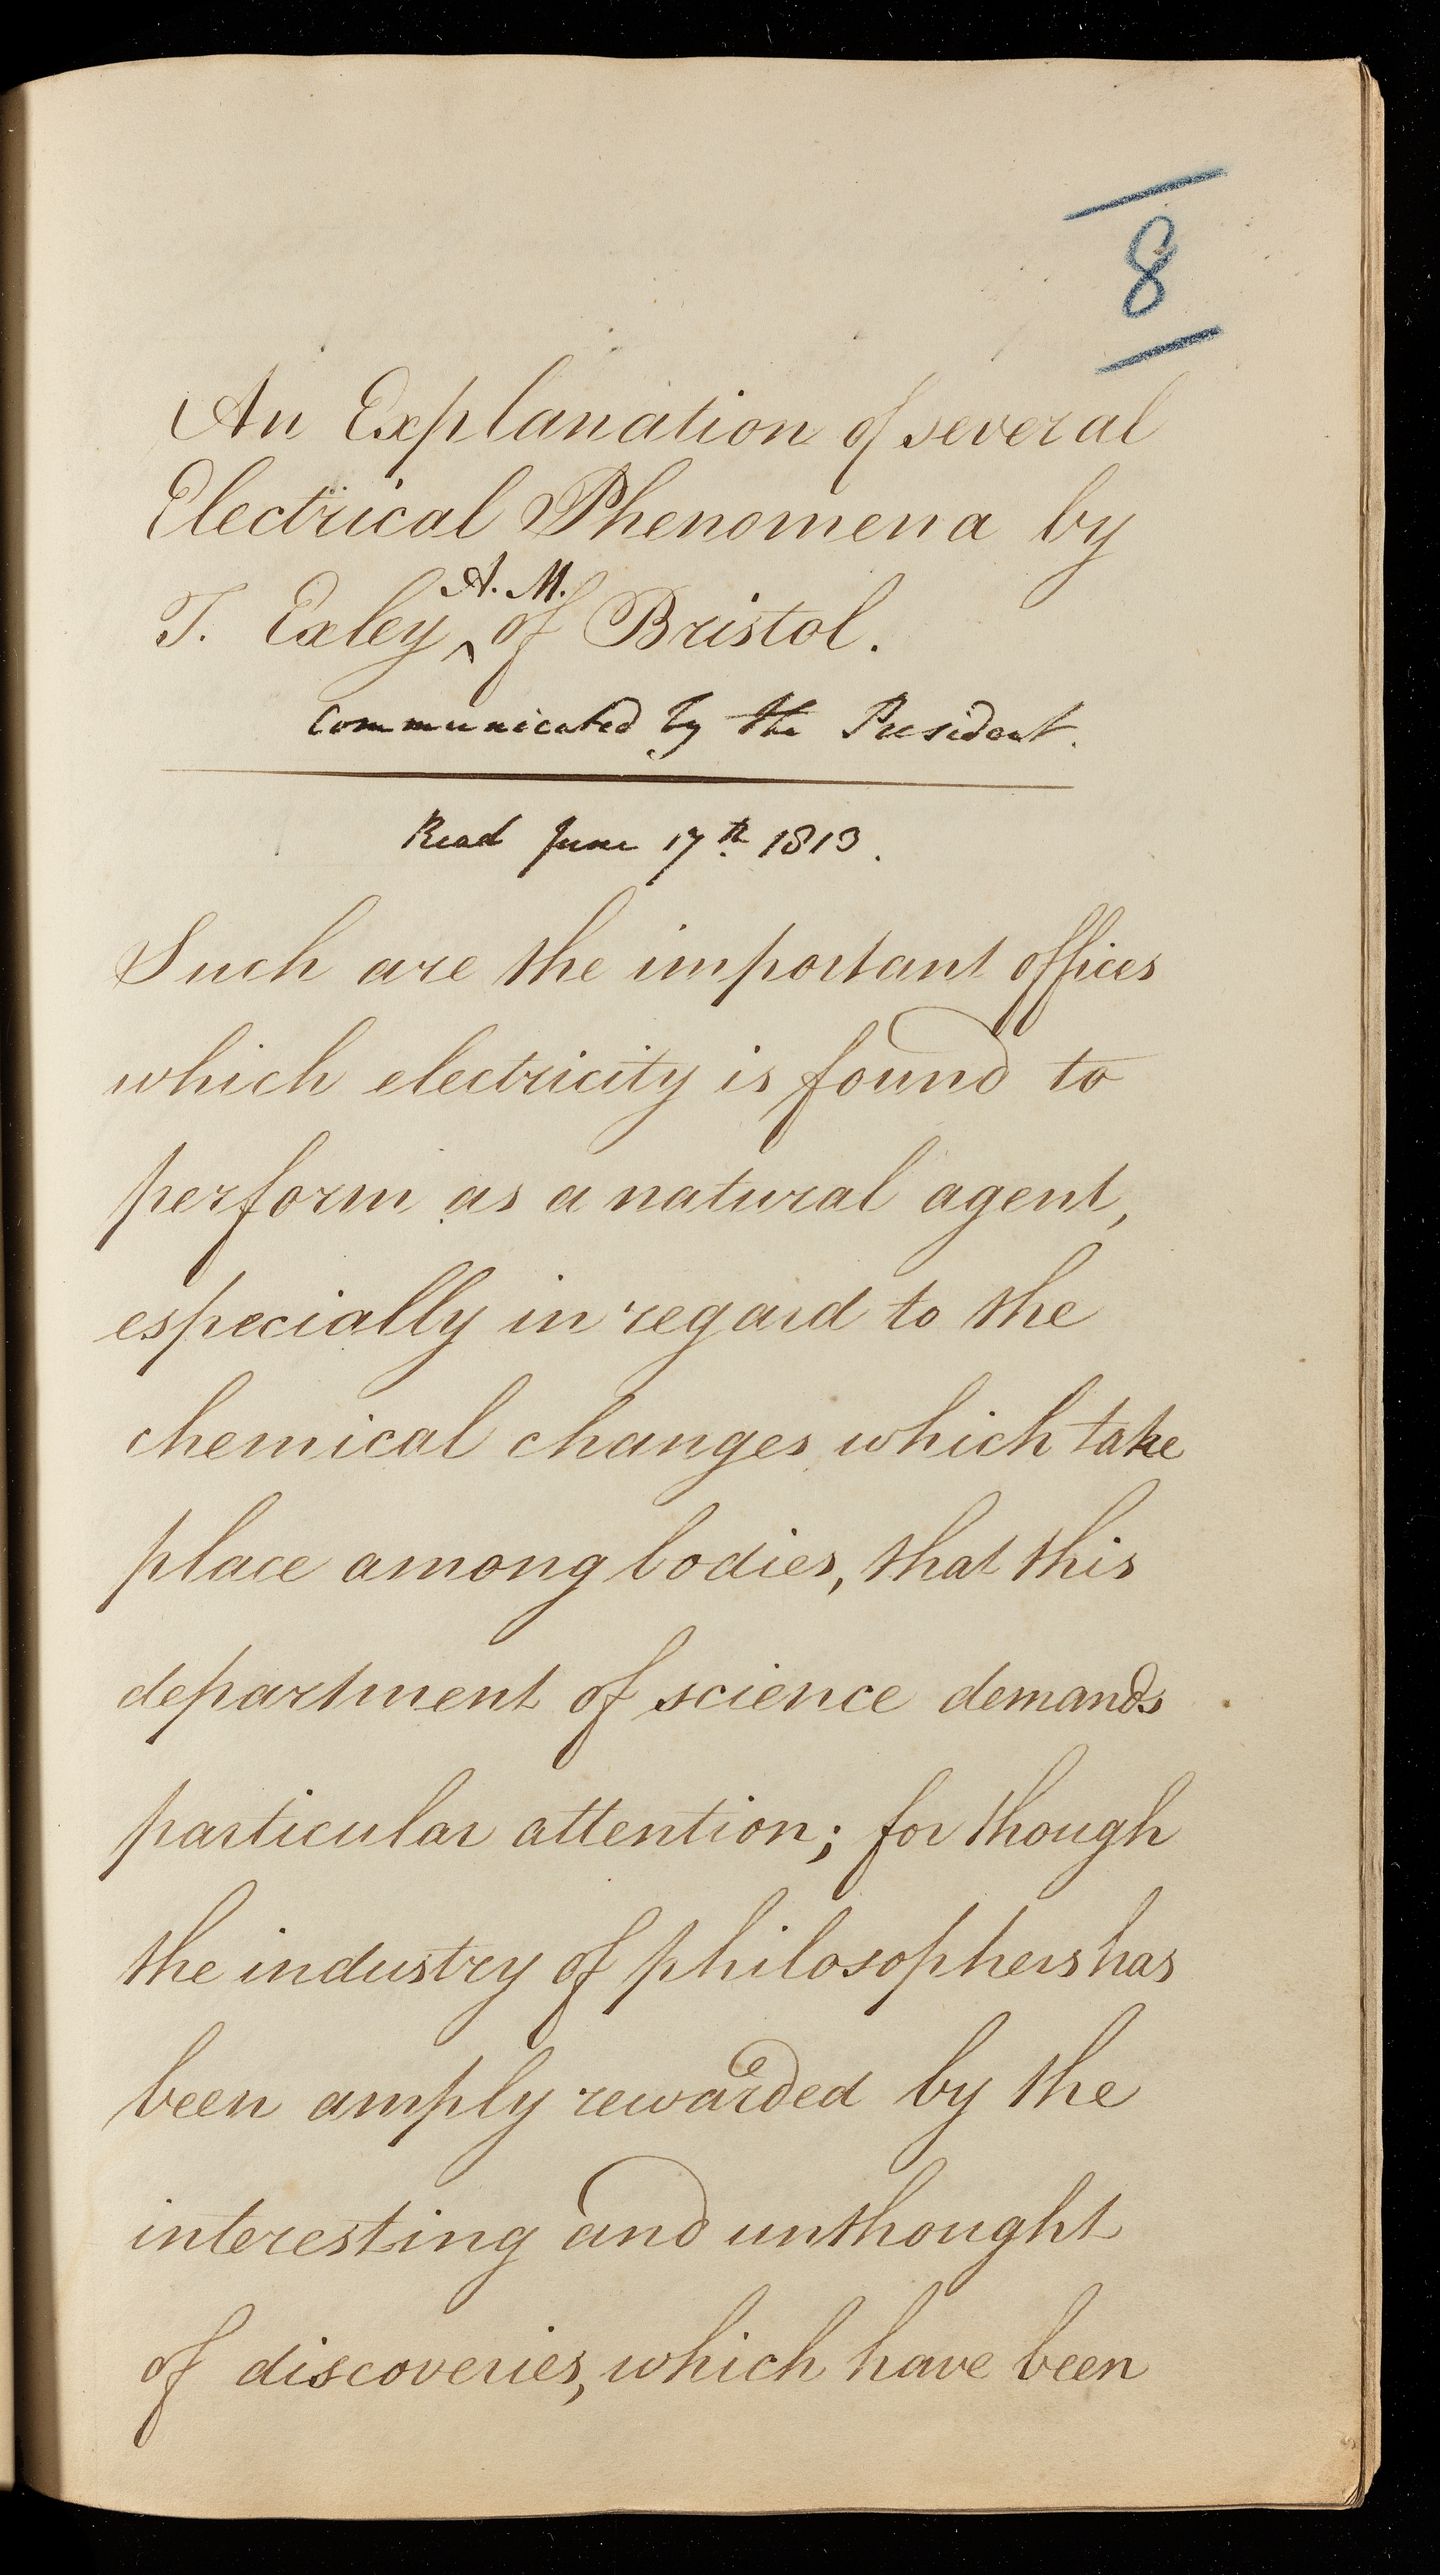 8
An Explanation of several
Electrical Phenomena by
A. M.
T. Exley ‸ of Bristol.
Communicated by the President.
Read June 17th. 1813.
Such are the important offices
which electricity is found to
perform as a natural agent,
especially in regard to the
chemical changes which take
place among bodies, that this
department of science demands
particular attention; for though
the industry of philosophers has
been amply rewarded by the
interesting and unthought
of discoveries, which have been